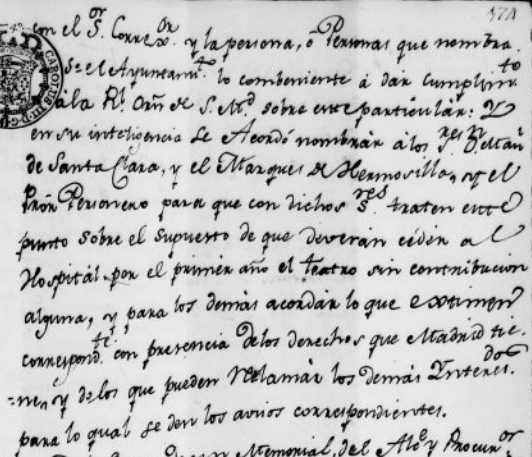 174
con el S.or Corre.or y la persona, ó Personas que nombra
se el Ayuntam.to lo combeniente á dar Cumplim.to
á la R.l Orn de S. M.d sobre este particular: Y
en su inteligencia se Acordó nombrar á los S.res D.n
de Santa Clara, y el Marques de Hermosilla, y el
Prōn Personero para que con dichos S.res traten este
punto sobre el supuesto de que deverán cédér al
Hospitál por el primér año el teatro sin contribucion
alguna, y para los demás acordar lo que extimen
correspond.te con presencia de los derechos que Madrid tie-
=ne, y de los que pueden Reclamár los demás Interesados
para lo qual se den los avisos correspondientes.
Memorial, del Alc.e y Procur.or